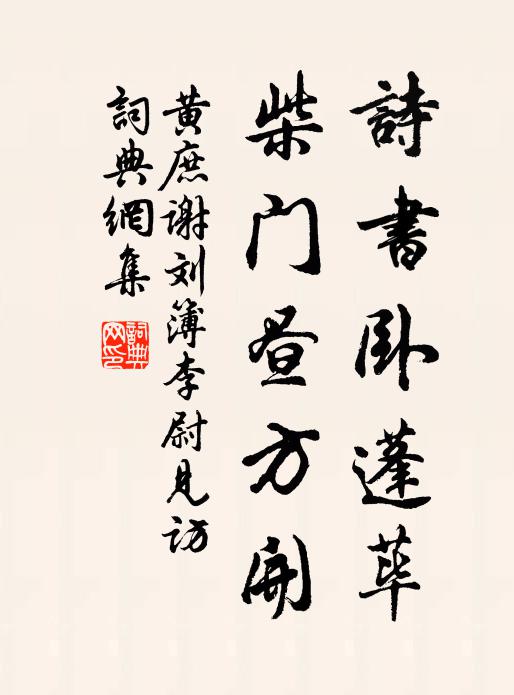 詩書卧蓬荜
柴门昼方開
黄庶谢刘簿李尉見访
詞典網集
詞典網印